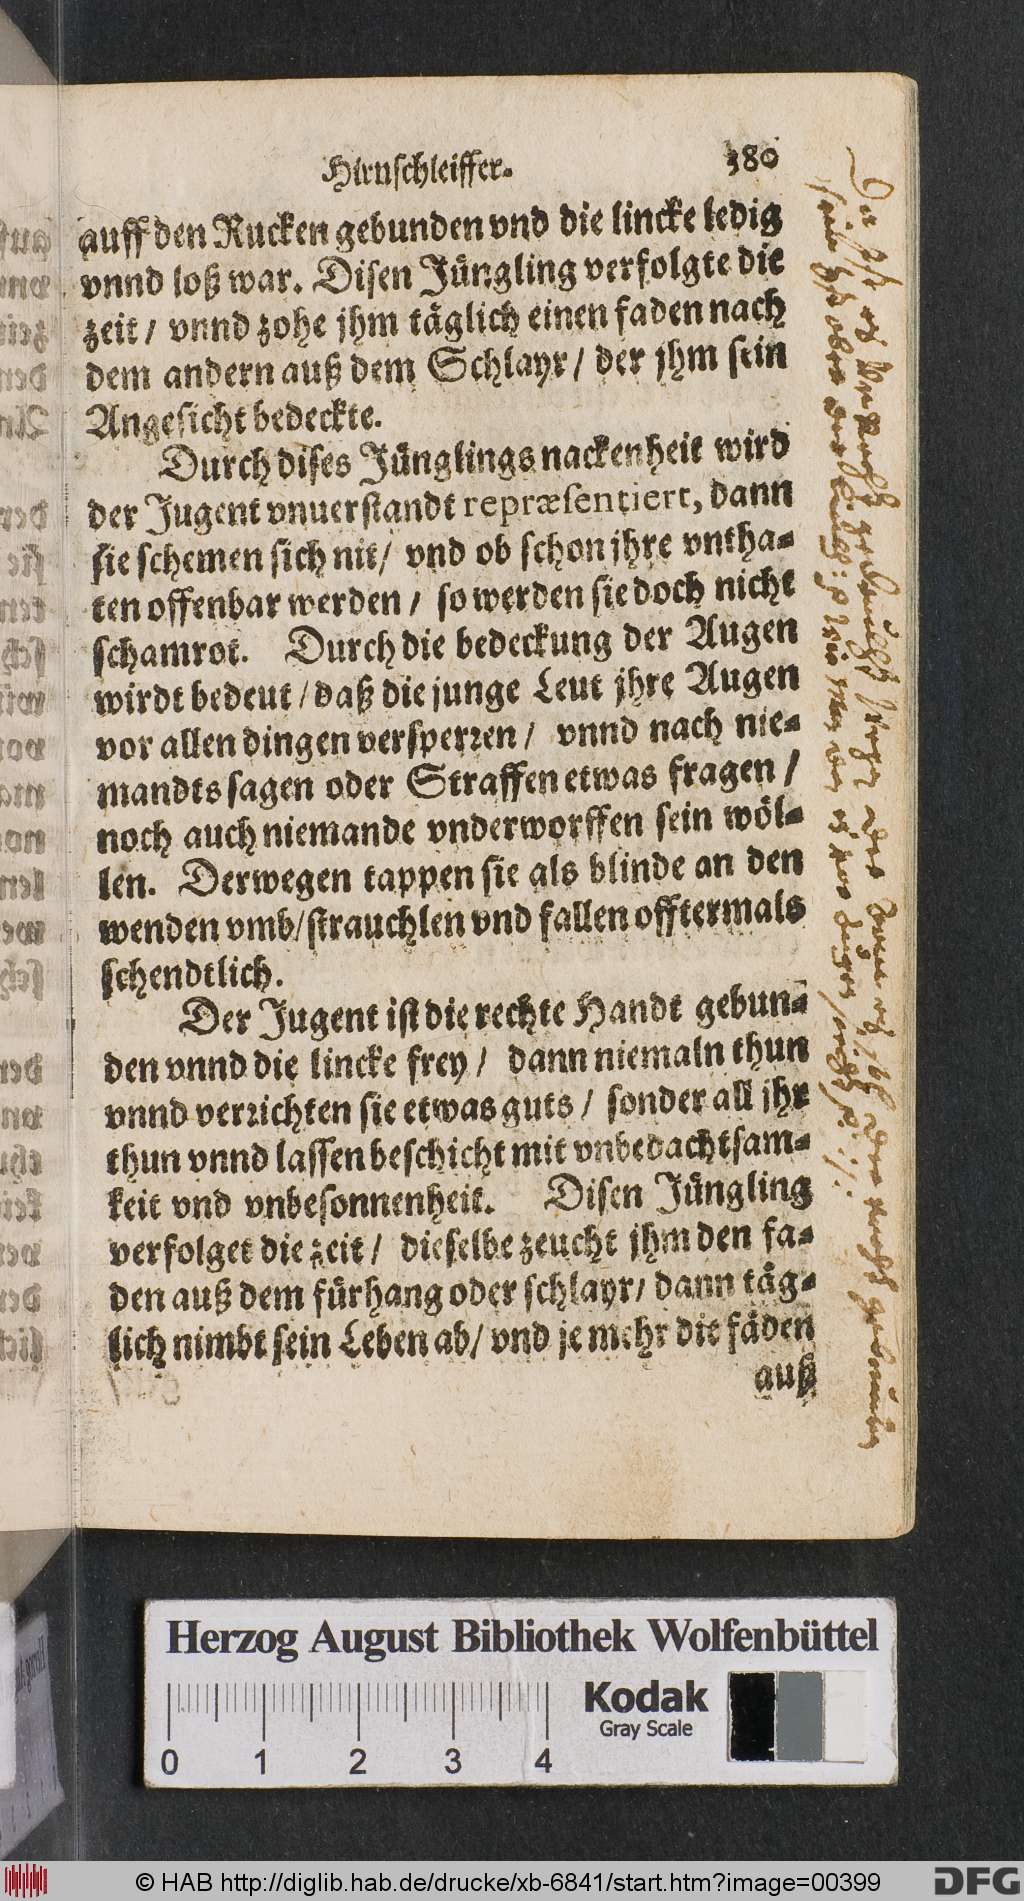 Hirnschleiffer.
380
auff den Rucken gebunden vnd die lincke ledig
vnnd loß war. Disen Jüngling verfolgte die
zeit / vnnd zohe jhm täglich einen faden nach
dem andern auß dem Schlayr / der jhm sein
Angesicht bedeckte.
Durch dises Jünglings nackenheit wird
der Jugent vnuerstandt repræsentiert, dann
sie schemen sich nit / vnd ob schon jhre vntha-
ten offenbar werden / so werden sie doch nicht
schamrot. Durch die bedeckung der Augen
wirdt bedeut / daß die junge Leut jhre Augen
vor allen dingen versperren / vnnd nach nie-
mandts sagen oder Straffen etwas fragen /
noch auch niemande vnderworffen sein wöl-
len. Derwegen tappen sie als blinde an den
wenden vmb / strauchlen vnd fallen offtermals
schendtlich.
Der Jugent ist die rechte Handt gebun-
den vnnd die lincke frey / dann niemaln thun
vnnd verrichten sie etwas guts / sonder all jhr
thun vnnd lassen beschicht mit vnbedachtsam-
keit vnd vnbesonnenheit. Disen Jüngling
verfolget die zeit / dieselbe zeucht jhm den fa-
den auß dem fürhang oder schlayr / dann täg-
lich nimbt sein Leben ab / vnd je mehr die fäden
auß
Herzog August Bibliothek Wolfenbüttel
Kodak
Gray Scale
0 1 2 3 4
© HAB http://diglib.hab.de/drucke/xb-6841/start.htm?image=00399
DFG